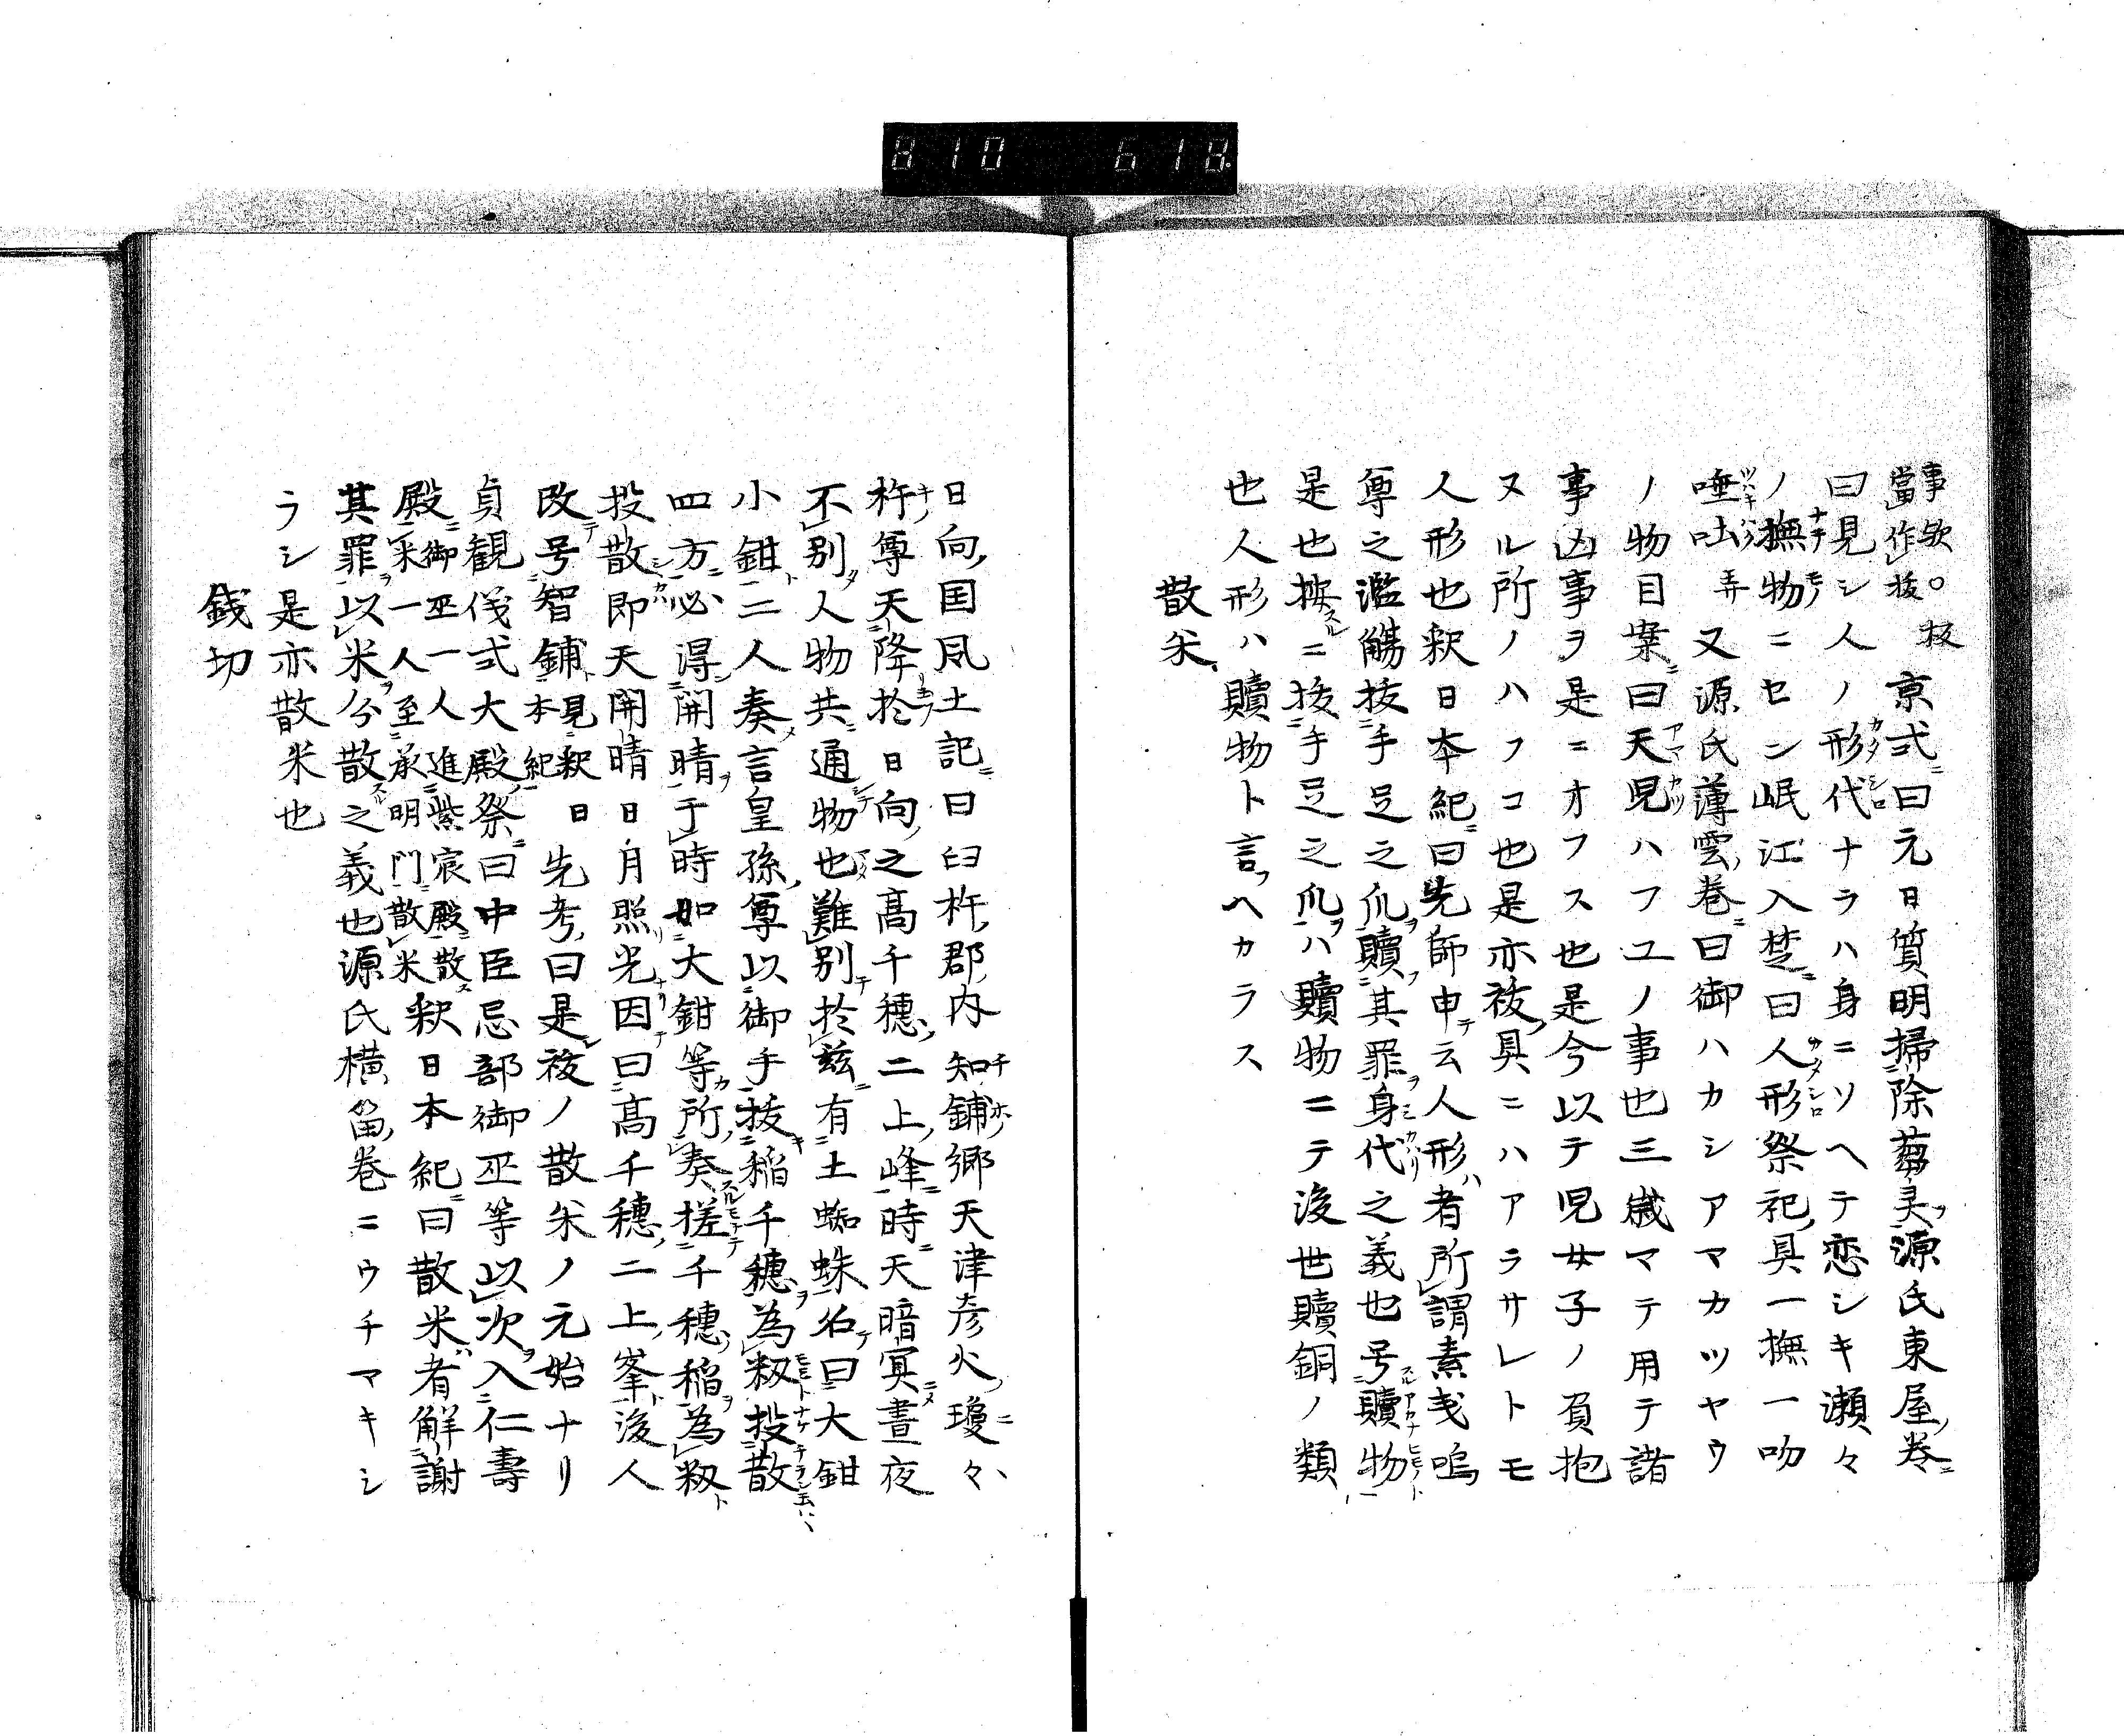 事欤。扱
當作祓。 京式曰元日質明掃除蒭灵源氏東屋巻
曰見シ人ノ形代ナラハ身ニソヘテ恋シキ瀬々
ノ撫物ニセン岷江入楚曰人形祭祀具一撫一吻
唾吐 弄 又源氏薄雲巻曰御ハカシアマカツヤウ
ノ物目案曰天児ハフユノ事也三歳マテ用テ諸
事凶事ヲ是ニオフス也是今以テ児女子ノ負抱
ヌル所ノハフコ也是亦祓具ニハアラサレトモ
人形也釈日本紀曰先師申云人形者所謂素戔嗚
尊之濫觴抜手足之爪贖其罪身代之義也号贖物
是也按ニ抜手足之爪ハ贖物ニテ後世贖銅ノ類
也人形ハ贖物ト言ヘカラス
散米
日向国風土記曰臼杵郡内知鋪郷天津彦火瓊々
杵尊天降於日向之高千穂二上峰時天暗冥晝夜
不別人物共通物也難別於茲有土蜘蛛名曰大鉗
小鉗二人奏言皇孫尊以御手抜稲千穂為籾投散
四方必得開晴于時如大鉗等所奏搓千穂稲為籾
投散即天開晴日月照光因曰高千穂二上峯後人
改号智鋪見釈日本紀 先考曰是祓ノ散米ノ元始ナリ
貞観儀式大殿祭曰中臣忌部御巫等以次入仁壽
殿御巫一人進紫宸殿散米一人至承明門散米釈日本紀曰散米者解謝
其罪以米分散之義也源氏横笛巻ニウチマキシ
ラシ是亦散米也
錢切
810 618